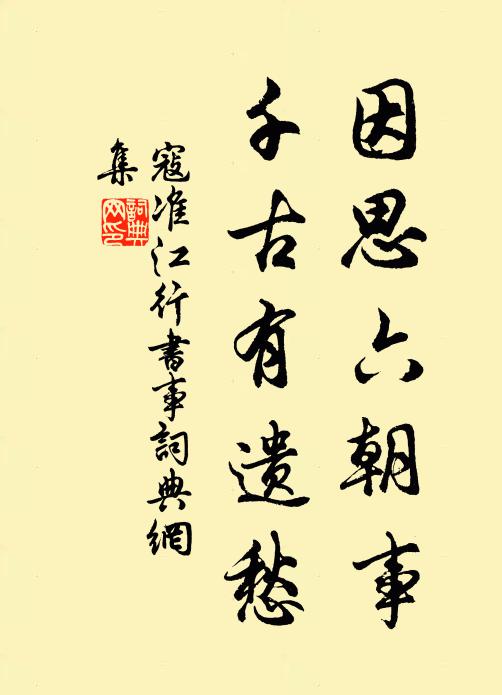 因思六朝事
千古有遗愁
寇准江行書事詞典網
集
詞典
网印